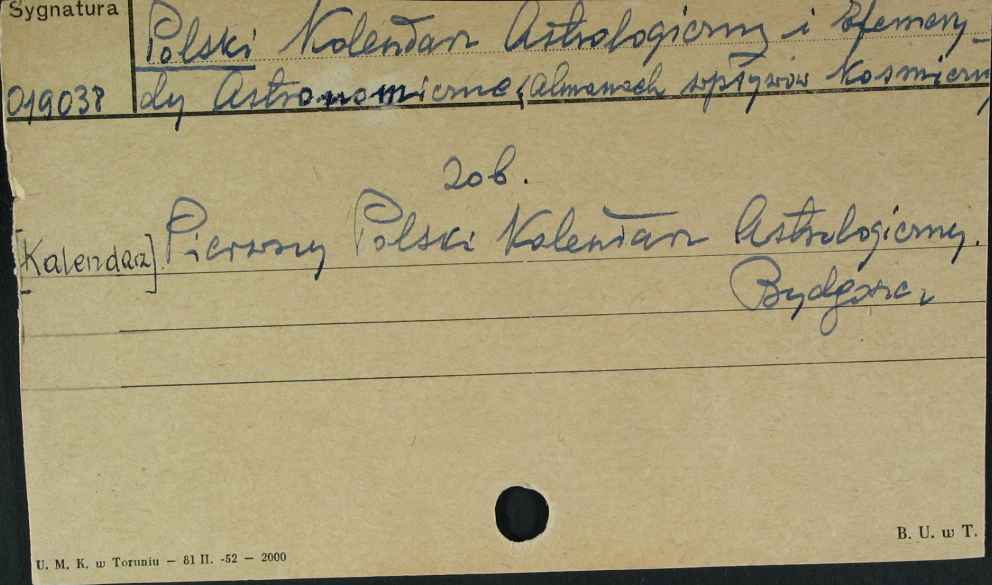 Sygnatura
Polski Kalendarz Astrologiczny i Efemery-
019038
dy Astronomiczne (Almanach wpływów Kosmiczny
zob.
[Kalendarz] Pierwszy Polski Kalendarz Astrologiczny.
Bydgoszcz
B. U. w T.
U. M. K. w Toruniu — 81 II. -52 — 2000